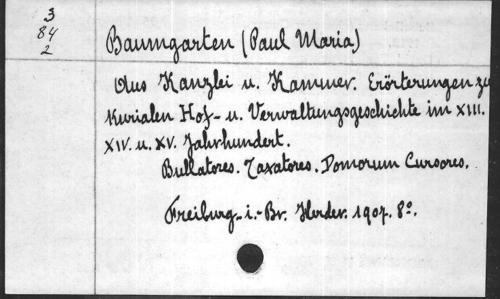 3
84
2
Baumgarten (Paul Maria)
Aus Kanzlei u. Kammer. Erörterungen zu
kurialen Hof- u. Verwaltungsgeschichte im XIII.
XIV. u. XV. Jahrhundert.
Bullatores. Taxatores. Domorum Cursores.
Freiburg- i.- Br. Herder. 1907. 8º.